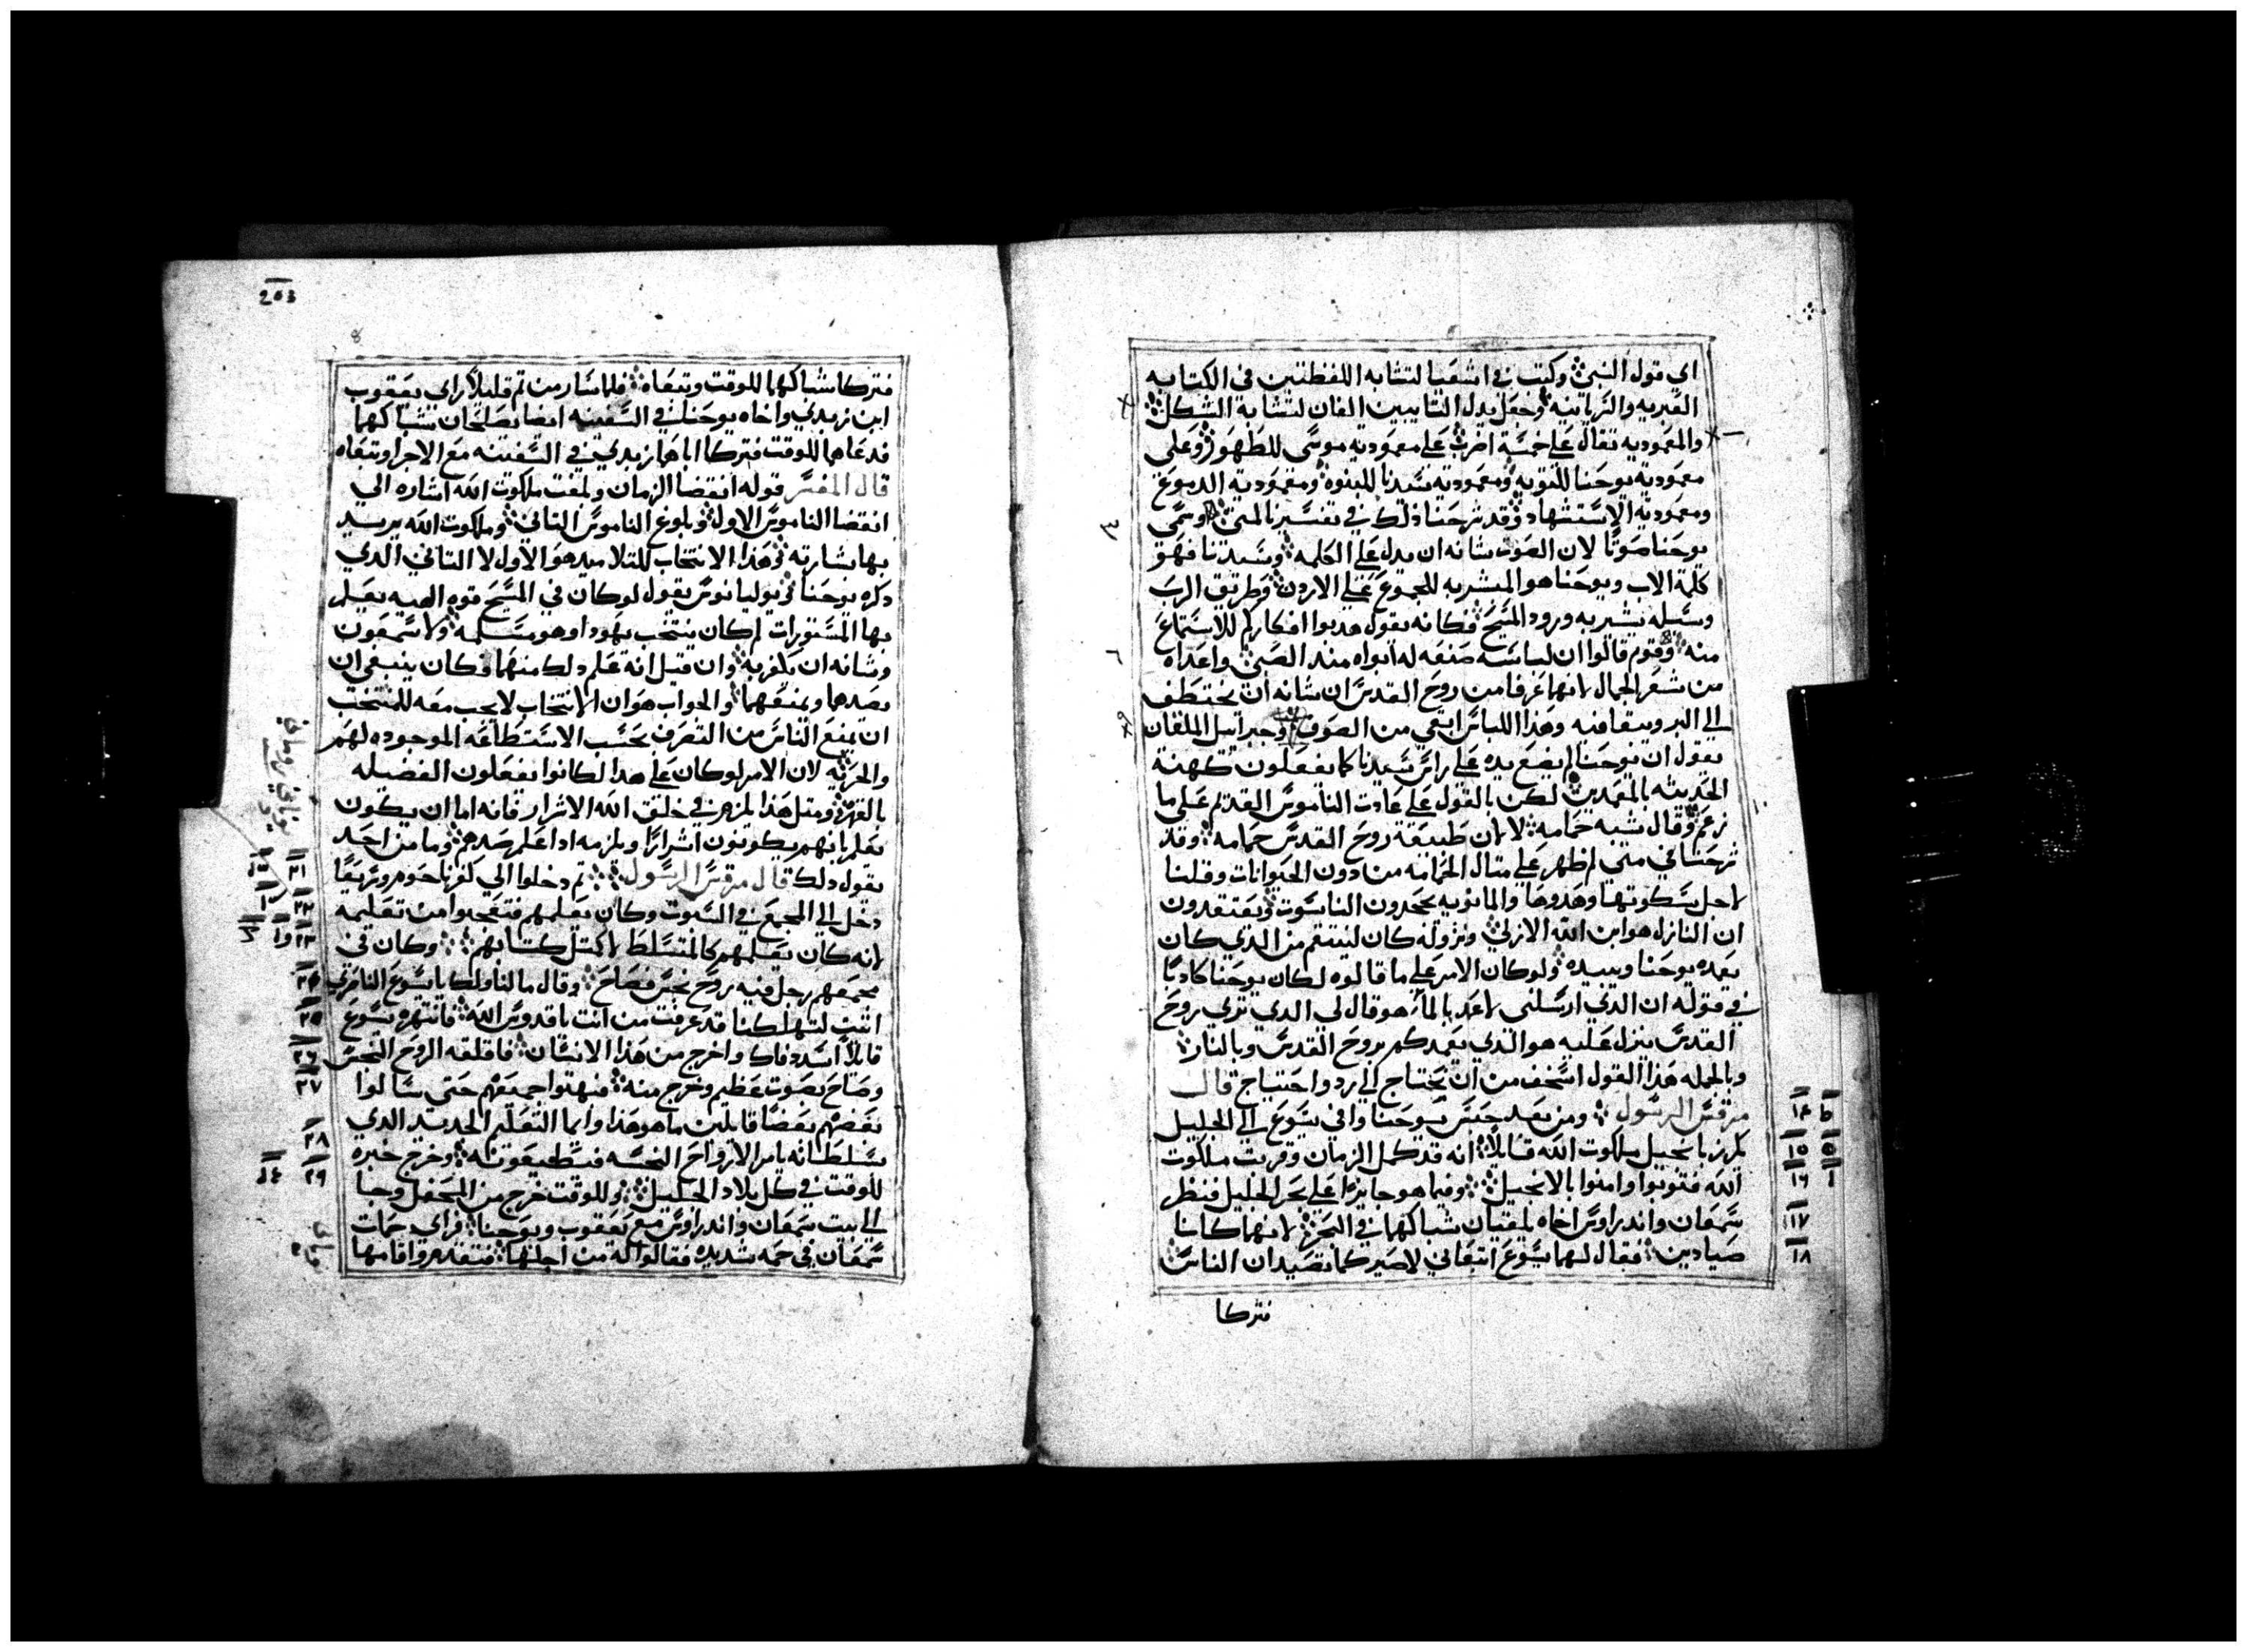 اي قول النبي وكتب في اشعيا لتشابه اللفظتين في الكتابه
العبريه والسريانيه وجعل بدل التابيين الفان لتشابه الشكل
والمعموديه تقال على خمسة اضرب على معموديه موسى للطهور وعلى
معموديه يوحنا للتوبه ومعموديه سيدنا للبنوه ومعموديه الدموع
ومعموديه الاستشهاد وقد شرحنا ذلك في تفسيرنا لمتى وسمى
يوحنا صوتا لان الصوت شانه ان يدل على الكلمه وسيدنا فهو
كلمة الاب ويوحنا هو المبشر به للجموع على الاردن وطريق الرب
وسبله بشير به ورود المسيح فكانه يقول هدبوا افكاركم للاستماع
منه وقوم قالوا ان لباسه صنعه له ابواه منذ الصبى واعداه
من شعر الجمال لانهما عرفا من روح القدس ان شانه ان يختطف
الى البر وبيقا فيه وهذا اللباس ابقى من الصوف وجبراييل الملفان
يقول ان يوحنا لم يضع يده على راس سيدنا كما يفعلون كهنة
الحديثه بالمعمدين لكن بالقول على عادت الناموس القديم على ما
زعم وقال شبه حمامه لا لان طبيعة روح القدس حمامه وقد
شرحنا في متى لم ظهر على مثال الحمامه من دون الحيوانات وقلنا
لاجل سكوتها وهدوها والمانويه يجحدون الناسوت ويعتقدون
ان النازل هو ابن الله الازلي ونزوله كان لينتقم من الذي كان
يعده يوحنا ويبيده ولو كان الامر على ما قالوه لكان يوحنا كادبا
في قوله ان الدي ارسلني لاعمد بالما هو قال لي الدي تري روح
القدس ينزل عليه هو الذي يعمدكم بروح القدس وبالنار
وبالجمله هذا القول اسخف من ان يحتاج الى رد واحتجاج قال
مرقس الرسول ومن بعد حبس يوحنا وافى يسوع الى الجليل
يكرز بانجيل ملكوت الله قايلا انه قد كمل الزمان وقربت ملكوت
الله فتوبوا وامنوا بالانجيل وفيما هو جايزا على بحر الجليل فنظر
سمعان واندراوس اخاه يلقيان شباكهما في البحر لانهما كانا
صيادين فقال لهما يسوع اتبعاني لاصيركما تصيدان الناس
فتركا
١٤
١٥
١٦
١٧
١٨
203
8
فتركا شباكهما للوقت وتبعاه فلما سار من ثم قليلا راى يعقوب
ابن زبدي واخاه يوحنا في السفينه ايضا يصلحان شباكهما
فدعاهما للوقت فتركا اباهما زبدي في السفينه مع الاجرا وتبعاه
قال المفسر قوله انقضا الزمان وبلغت ملكوت الله اشاره الي
انقضا الناموس الاول وبلوغ الناموس الثاني وملكوت الله يريد
بها بشارته وهذا الانتخاب للتلاميد هو الاول لا الثاني الدي
دكره يوحنا ويوليانوس يقول لو كان في المسيح قوه الهيه يعلم
بها المستورات لم كان ينتخب يهودا وهو مسلمه ولا سمعون
وشانه ان يكفر به وان قيل انه علم دلك منهما وكان ينبغي ان
يصدهما ويمنعهما والجواب هو ان الانتخاب لا يجب معه للمنتخب
ان يمنع الناس من التصرف بحسب الاستطاعه الموجوده لهم
والحريه لان الامر لو كان على هذا لكانوا يفعلون الفضيله
بالقهر ومثل هذا يلزم في خلق الله الاشرار فانه اما ان يكون
يعلم بانهم يكونون اشرارا ويلزمه ادا علم صدهم وما من احد
يقول دلك قال مرقس الرسول ثم دخلوا الي كفرناحوم وسريعا
دخل الى المجمع في السبوت وكان يعلمهم فتعجبوا من تعليمه
لانه كان يعلمهم كالمتسلط لا كمثل كتابهم وكان في
مجمعهم رجل فيه روح نجس فصاح وقال ما لنا ولك يا يسوع الناصري
اتيت لتهلكنا قد عرفت من انت يا قدوس الله فانتهره يسوع
قايلا اسدد فاك واخرج من هذا الانسان فاقلقه الروح النجس
وصاح بصوت عظيم وخرج منه فبهتوا جميعهم حتى سالوا
بعضهم بعضا قايلين ما هو هذا وايما التعليم الجديد الدي
بسلطانه يامر الارواح النجسه فتطيعونه وخرج خبره
للوقت في كل بلاد الجليل وللوقت خرج من المحفل وجا
الى بيت سمعان واندراوس مع يعقوب ويوحنا فراى حمات
سمعان في حمه شديده فقالوا له من اجلها فتقدم واقامها
٢١
٢٢
٢٣
٢٤
٢٥
٢٦
٢٧
٢٨
٢٩